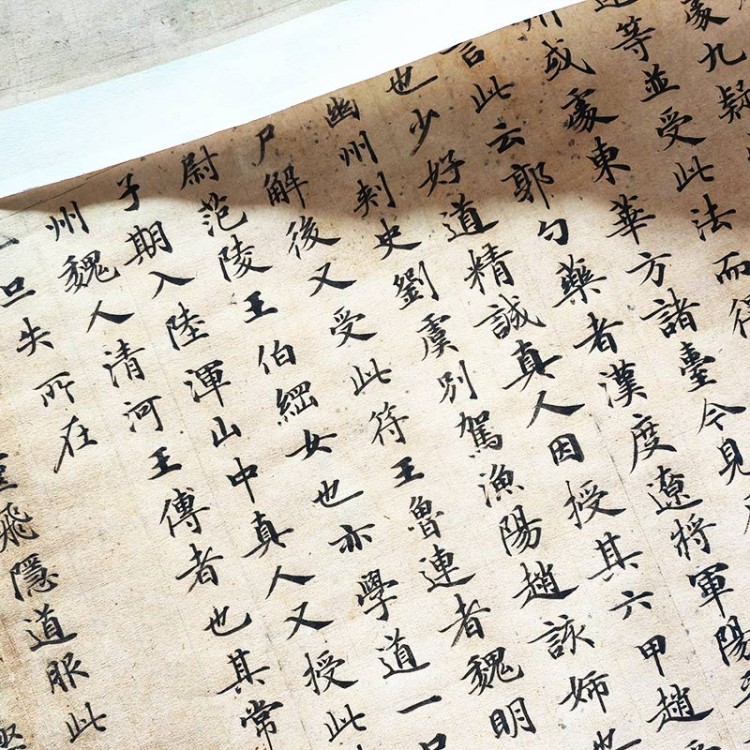 處九疑
等並受此法而得
州或處東華方諸臺今見
言此云郭勺藥者漢度遼將軍陽
也少好道精誠真人因授其六甲趙
幽州刺史劉虞別駕漁陽趙該姊也
尸解後又受此符王魯連者魏明
尉范陵王伯綱女也亦學道一旦
子期入陸渾山中真人又授此
州魏人清河王傳者也其常
旦失所在
飛隱道服此